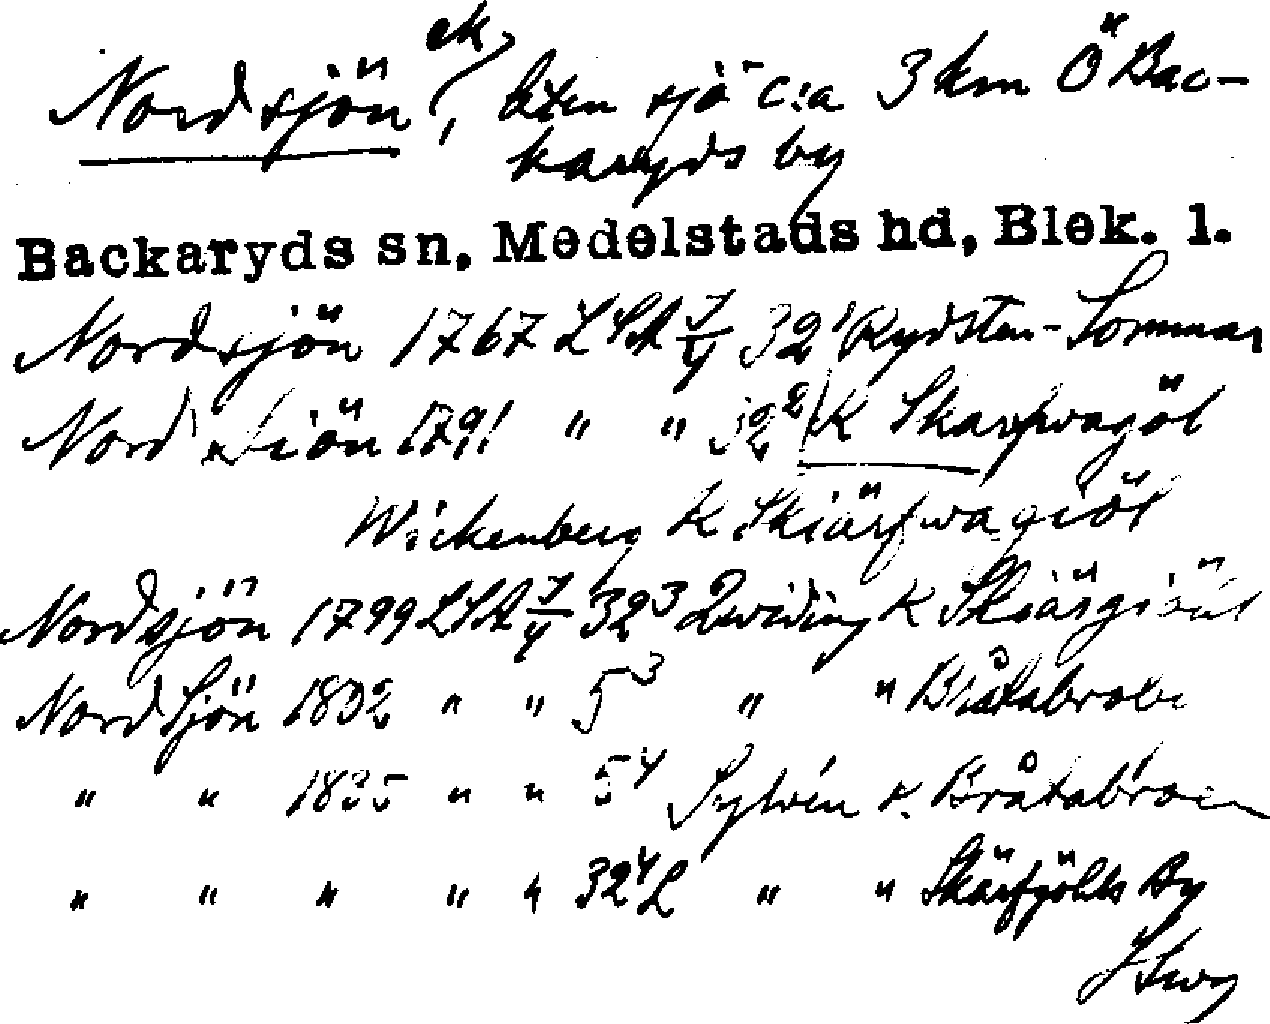 Nordsjön ek, liten sjö c:a 3 km Ö Bac-
karyds by
Backaryds sn, Medelstads hd, Blek. l.
Nordsjön 1767 LSA J/4 32¹ Rydsten-Sommar
Nord siön 1791 " " 32² K Skarfwagöl
Wickenberg K Skiärfwagiöl
Nordsjön 1799 LSA J/4 32³ Qwiding K Skiärgiöhl
Nord Sjön 1802 " " 5³ " " Bråtabroen
" " 1835 " " 5⁴ Sylvén K. Bråtabroen
" " " " " 32⁴ L " " Skärfjöhls By